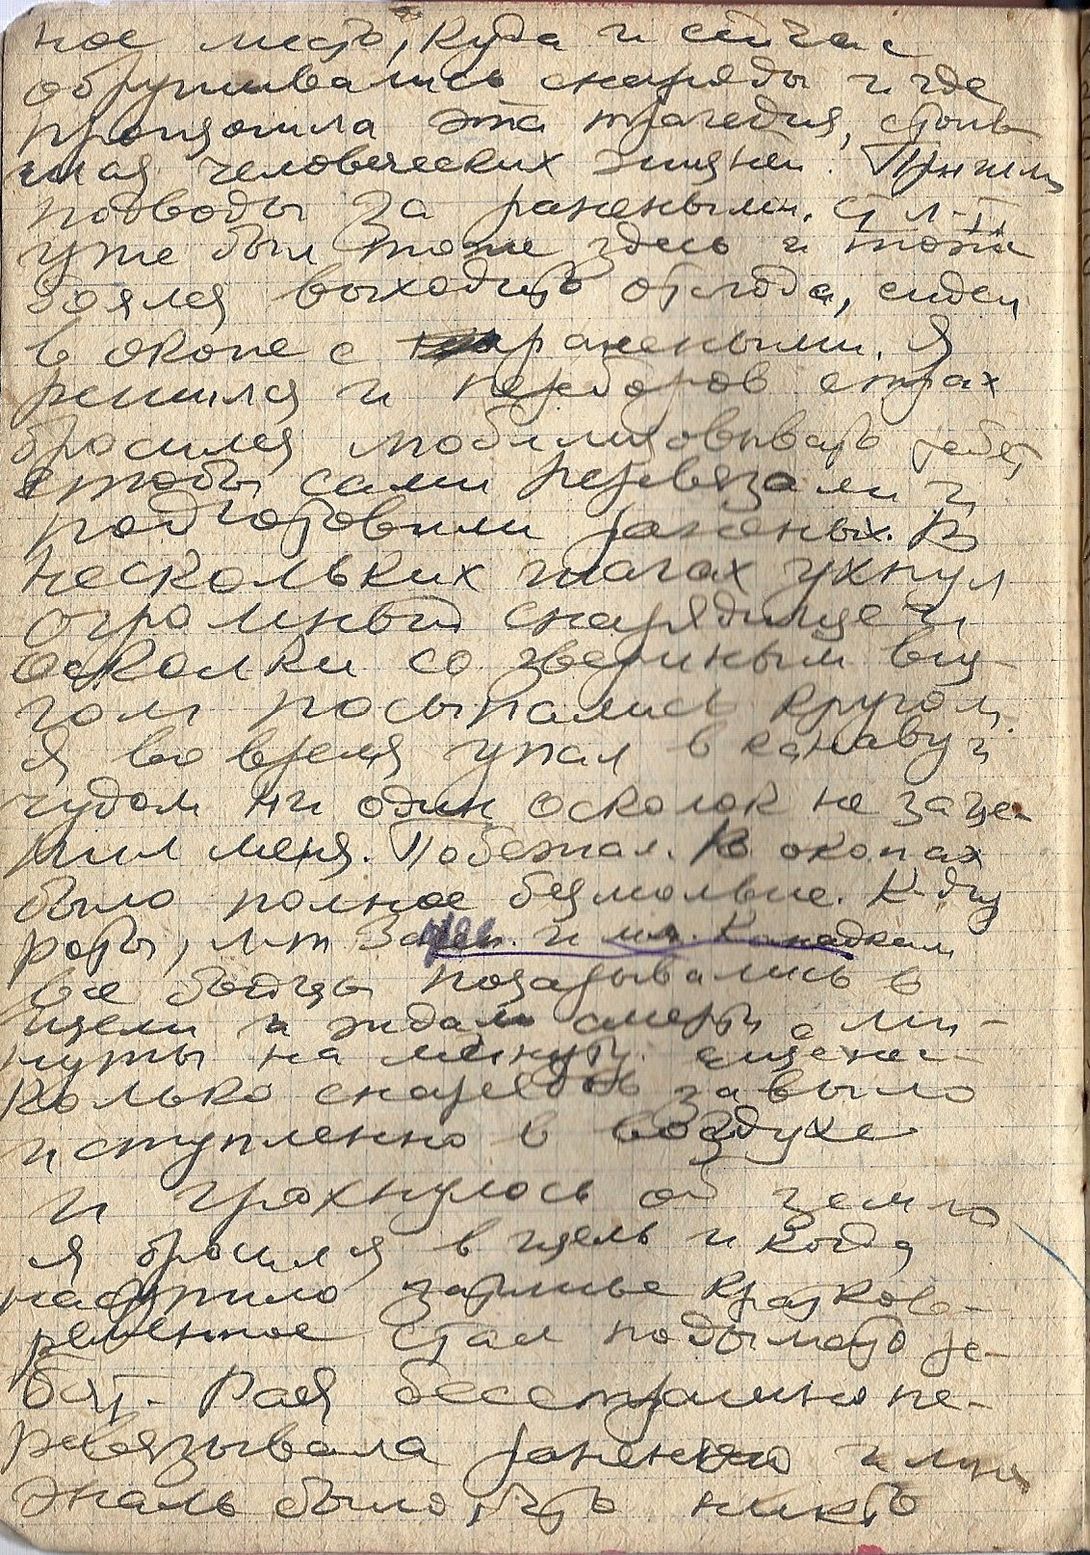 ное место, куда и сейчас
обрушивались снаряды и где
произошла эта трагедия, стоив
шая человеческих жизней. Пришли
подводы за ранеными. Ст л-т
уже был тоже здесь и тоже
боялся выходить отсюда, сидел
в окопе с ранеными. Я
решился и переборов страх
бросился мобилизовывать ребят,
чтобы сами перевязали и
подготовили раненых. В
нескольких шагах ухнул
огромный снарядище и
осколки со звериным виз-
гом посыпались кругом.
Я во время упал в канаву и
чудом ни один осколок не заце-
пил меня. Побежал. В окопах
было полное безмолвие. К-ды
роты, л-т и мл. Канадкам
все бойцы позарывались в
щели и ждали смерти с ми-
нуты на минуту. еще нес-
колько снарядов завыло
иступленно в воздухе
и грохнулось об землю
я бросился в щель и когда
наступило затишье кратков-
ременное стал подымать ре-
бят. Рая бесстрашно пе-
ревязывала раненого и мне
жаль было, что никто